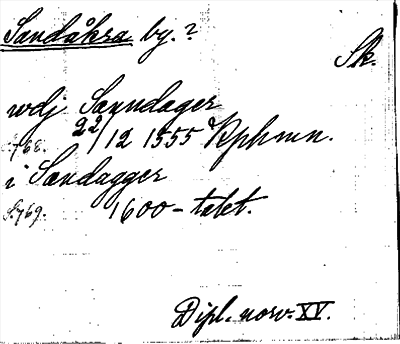 Sandåkra by.?
Sk.
wdj Sanndager
s. 768. 22/12 1555 Kphmn.
i Sandagger
s. 769. 1600-talet.
Dipl. norv. XV.